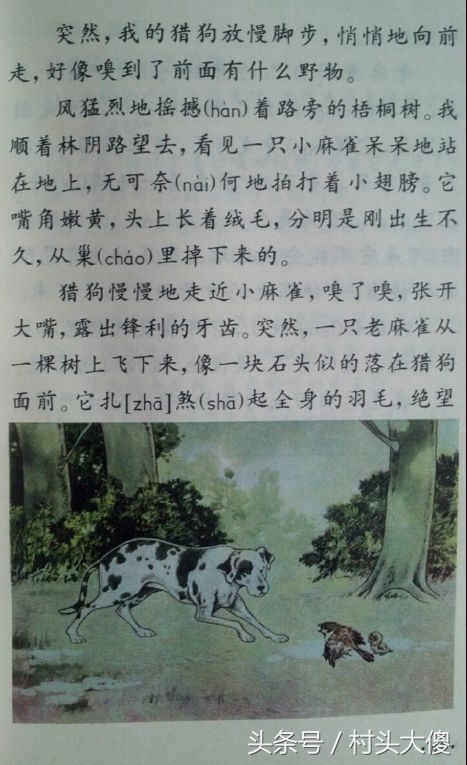 突然，我的猎狗放慢脚步，悄悄地向前
走，好像嗅到了前面有什么野物。
风猛烈地摇撼(hàn)着路旁的梧桐树。我
顺着林阴路望去，看见一只小麻雀呆呆地站
在地上，无可奈(nài)何地拍打着小翅膀。它
嘴角嫩黄，头上长着绒毛，分明是刚出生不
久，从巢(cháo)里掉下来的。
猎狗慢慢地走近小麻雀，嗅了嗅，张开
大嘴，露出锋利的牙齿。突然，一只老麻雀从
一棵树上飞下来，像一块石头似的落在猎狗
面前。它扎[zhā]煞(shā)起全身的羽毛，绝望
头条号/村头大傻